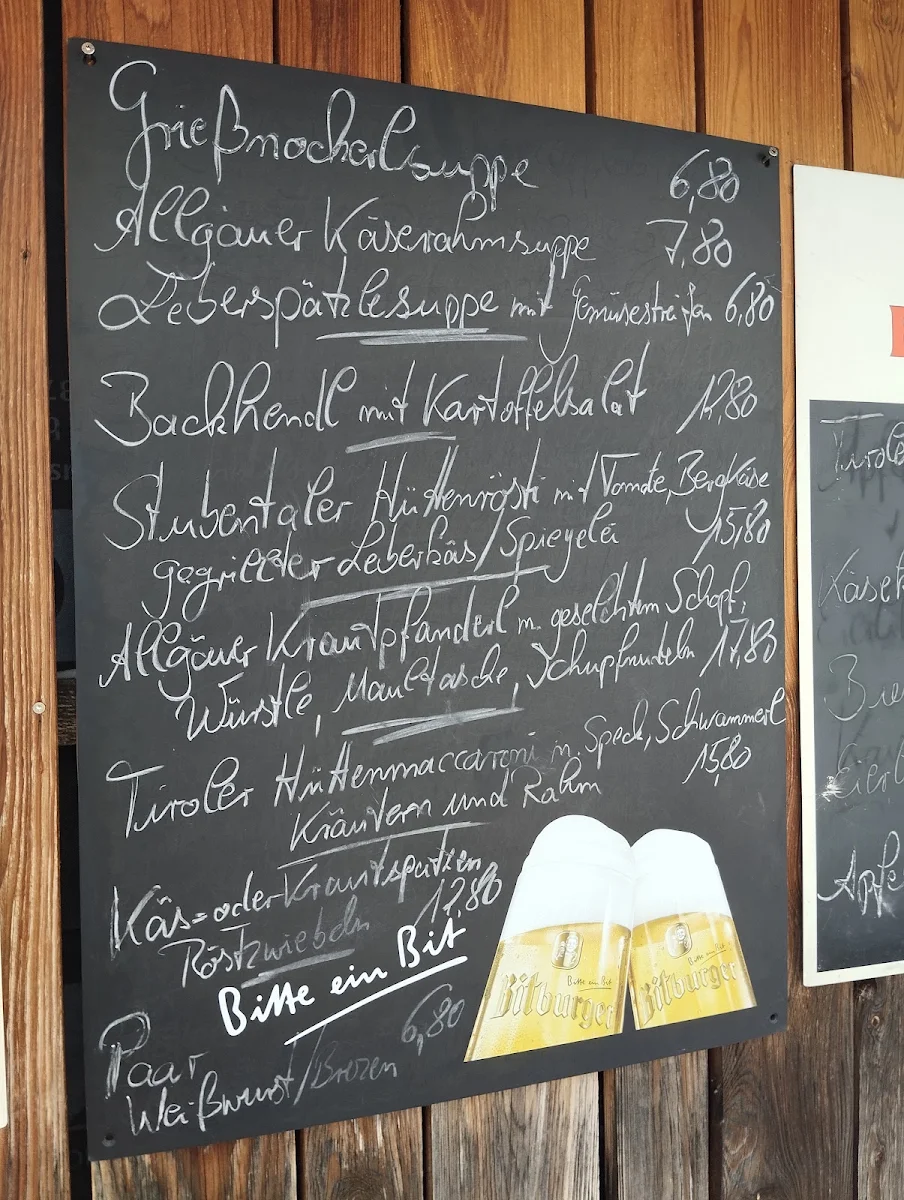 Grießnockerlsuppe 6,80
Allgäuer Käserahmsuppe 7,80
Leberspätzlesuppe mit Gemüsestreifen 6,80
Backhendl mit Kartoffelsalat 17,80
Stubentaler Hüttenrösti mit Tomate, Bergkäse
gegrillter Leberkäs/Spiegelei 15,80
Allgäuer Krautpfanderl m. geselchtem Schopf,
Würstle, Maultasche, Schupfnudeln 17,80
Tiroler Hüttenmaccaroni m. Speck, Schwammerl
Kräutern und Rahm 15,80
Käs= oder Krautspatzen
Röstzwiebeln 12,80
Bitte ein Bit
Paar 6,80
Weißwurst/Brezen
Bitte ein Bit
Bitburger
Bitte ein Bit
Bitburger
Tiroler